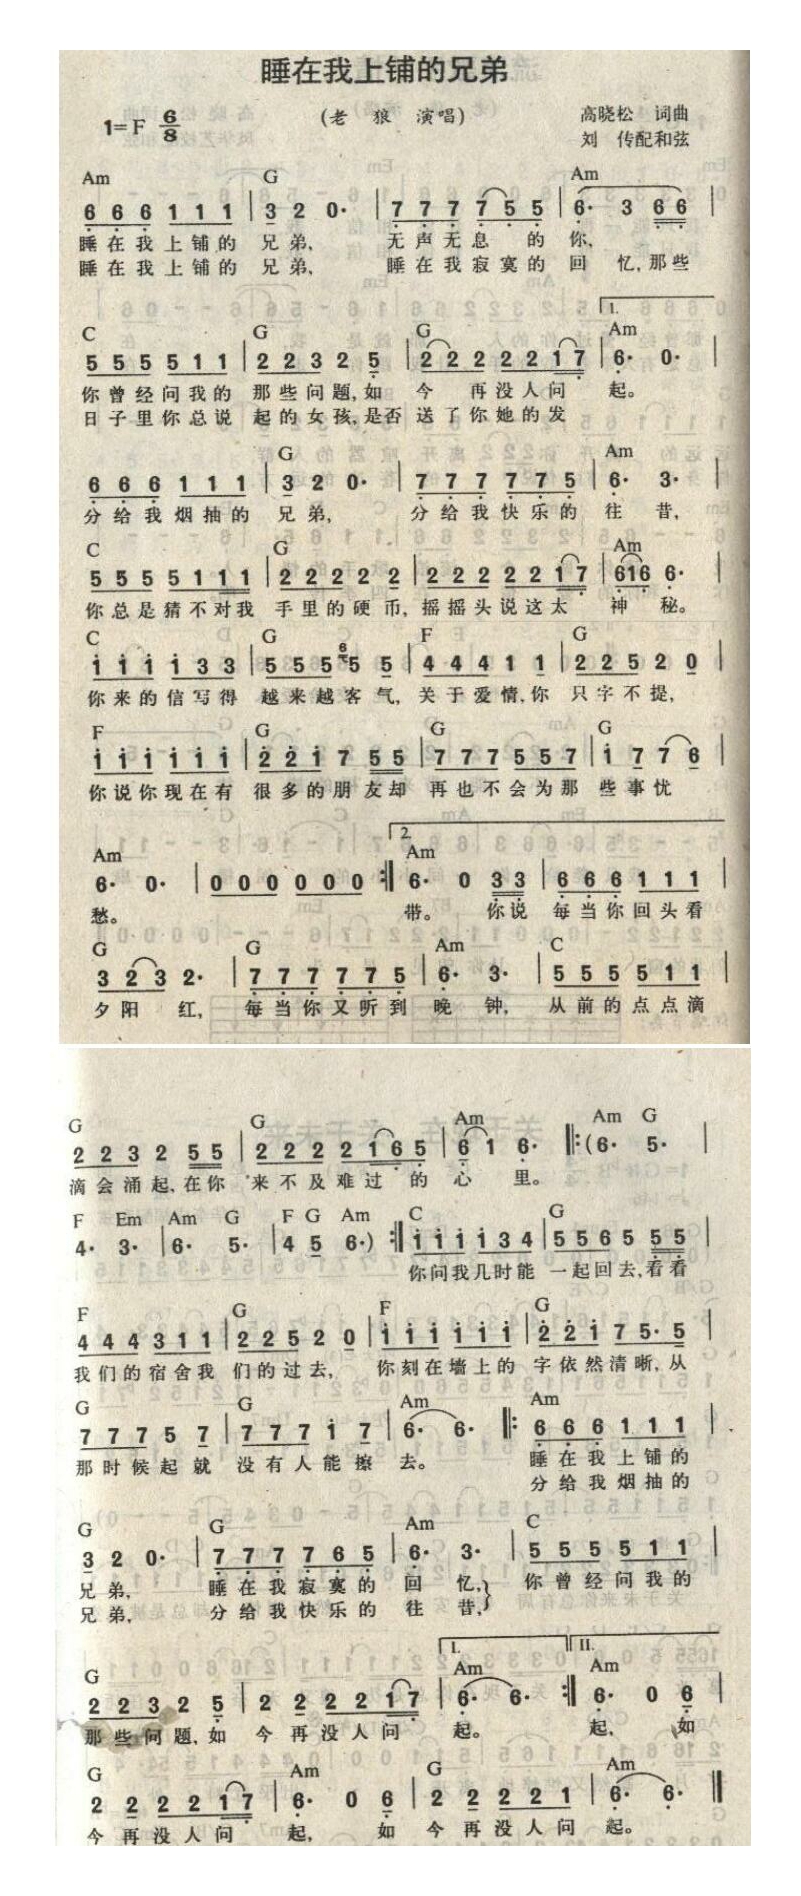 睡在我上铺的兄弟
1=F 6/8
(老 狼 演唱)
高晓松 词曲
刘 传配和弦
Am G Am
6 6 6 1 1 1 | 3 2 0· | 7 7 7 7 5 5 | 6· 3 6 6 |
睡在我上铺的 兄弟, 无声无息 的 你,
睡在我上铺的 兄弟, 睡在我寂寞的 回 忆,那些
1.
C G G Am
5 5 5 5 1 1 | 2 2 3 2 5 | 2 2 2 2 2 1 7 | 6· 0· |
你曾经问我的 那些问题,如 今 再没人问 起。
日子里你总说 起的女孩,是否 送了你她的发
G Am
6 6 6 1 1 1 | 3 2 0· | 7 7 7 7 7 5 | 6· 3· |
分给我烟抽的 兄弟, 分给我快乐的 往 昔,
C G Am
5 5 5 5 1 1 1 | 2 2 2 2 2 | 2 2 2 2 2 1 7 | 616 6· |
你总是猜不对我 手里的硬币, 摇摇头说这太 神 秘。
C G F G
1 1 1 1 3 3 | 5 5 5 6 5 5 | 4 4 4 1 1 | 2 2 5 2 0 |
你来的信写得 越来越客气, 关于爱情,你 只字不提,
F G G G
1 1 1 1 1 1 | 2 2 1 7 5 5 | 7 7 7 5 5 7 | 1 7 7 6 |
你说你现在有 很多的朋友却 再也不会为那 些事忧
2.
Am Am
6· 0· | 0 0 0 0 0 0 :‖ 6· 0 3 3 | 6 6 6 1 1 1 |
愁。 带。 你说 每当你回头看
G G Am C
3 2 3 2· | 7 7 7 7 7 5 | 6· 3· | 5 5 5 5 1 1 |
夕阳 红, 每当你又听到 晚 钟, 从前的点点滴
G G Am Am G
2 2 3 2 5 5 | 2 2 2 2 1 6 5 | 6 1 6· ‖: (6· 5· |
滴会涌起,在你 来不及难过 的 心 里。
F Em Am G F G Am C G
4· 3· | 6· 5· | 4 5 6·) :‖ 1 1 1 1 3 4 | 5 5 6 5 5 5 |
你问我几时能 一起回去,看看
F G F G
4 4 4 3 1 1 | 2 2 5 2 0 | 1 1 1 1 1 1 | 2 2 1 7 5· 5 |
我们的宿舍我 们的过去, 你刻在墙上的 字依然清晰,从
G G Am Am
7 7 7 5 7 | 7 7 7 1 7 | 6· 6· ‖: 6 6 6 1 1 1 |
那时候起就 没有人能擦 去。 睡在我上铺的
分给我烟抽的
G G Am C
3 2 0· | 7 7 7 7 6 5 | 6· 3· | 5 5 5 5 1 1 |
兄弟, 睡在我寂寞的 回 忆,} 你曾经问我的
兄弟, 分给我快乐的 往 昔,
I. II.
G Am Am
2 2 3 2 5 | 2 2 2 2 1 7 | 6· 6· :‖ 6· 0 6 |
那些问题,如 今再没人问 起。 起, 如
G Am G Am
2 2 2 2 1 7 | 6· 0 6 | 2 2 2 2 1 | 6· 6· ‖
今再没人问 起, 如 今再没人问 起。